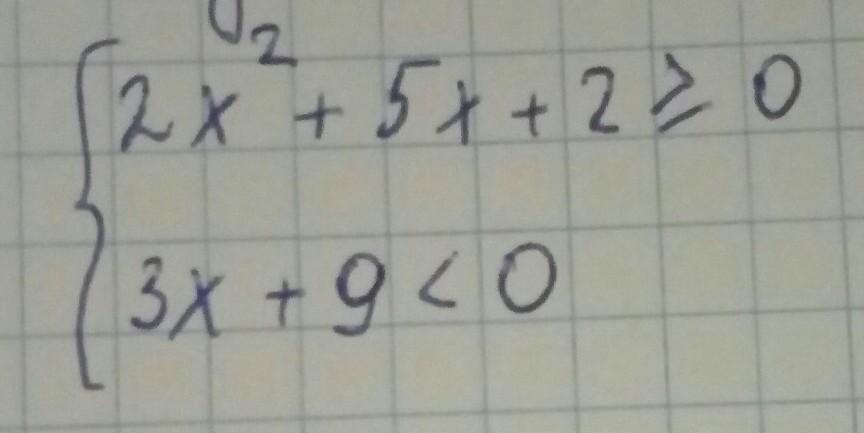 2x² + 5x + 2 ≥ 0
3x + 9 < 0